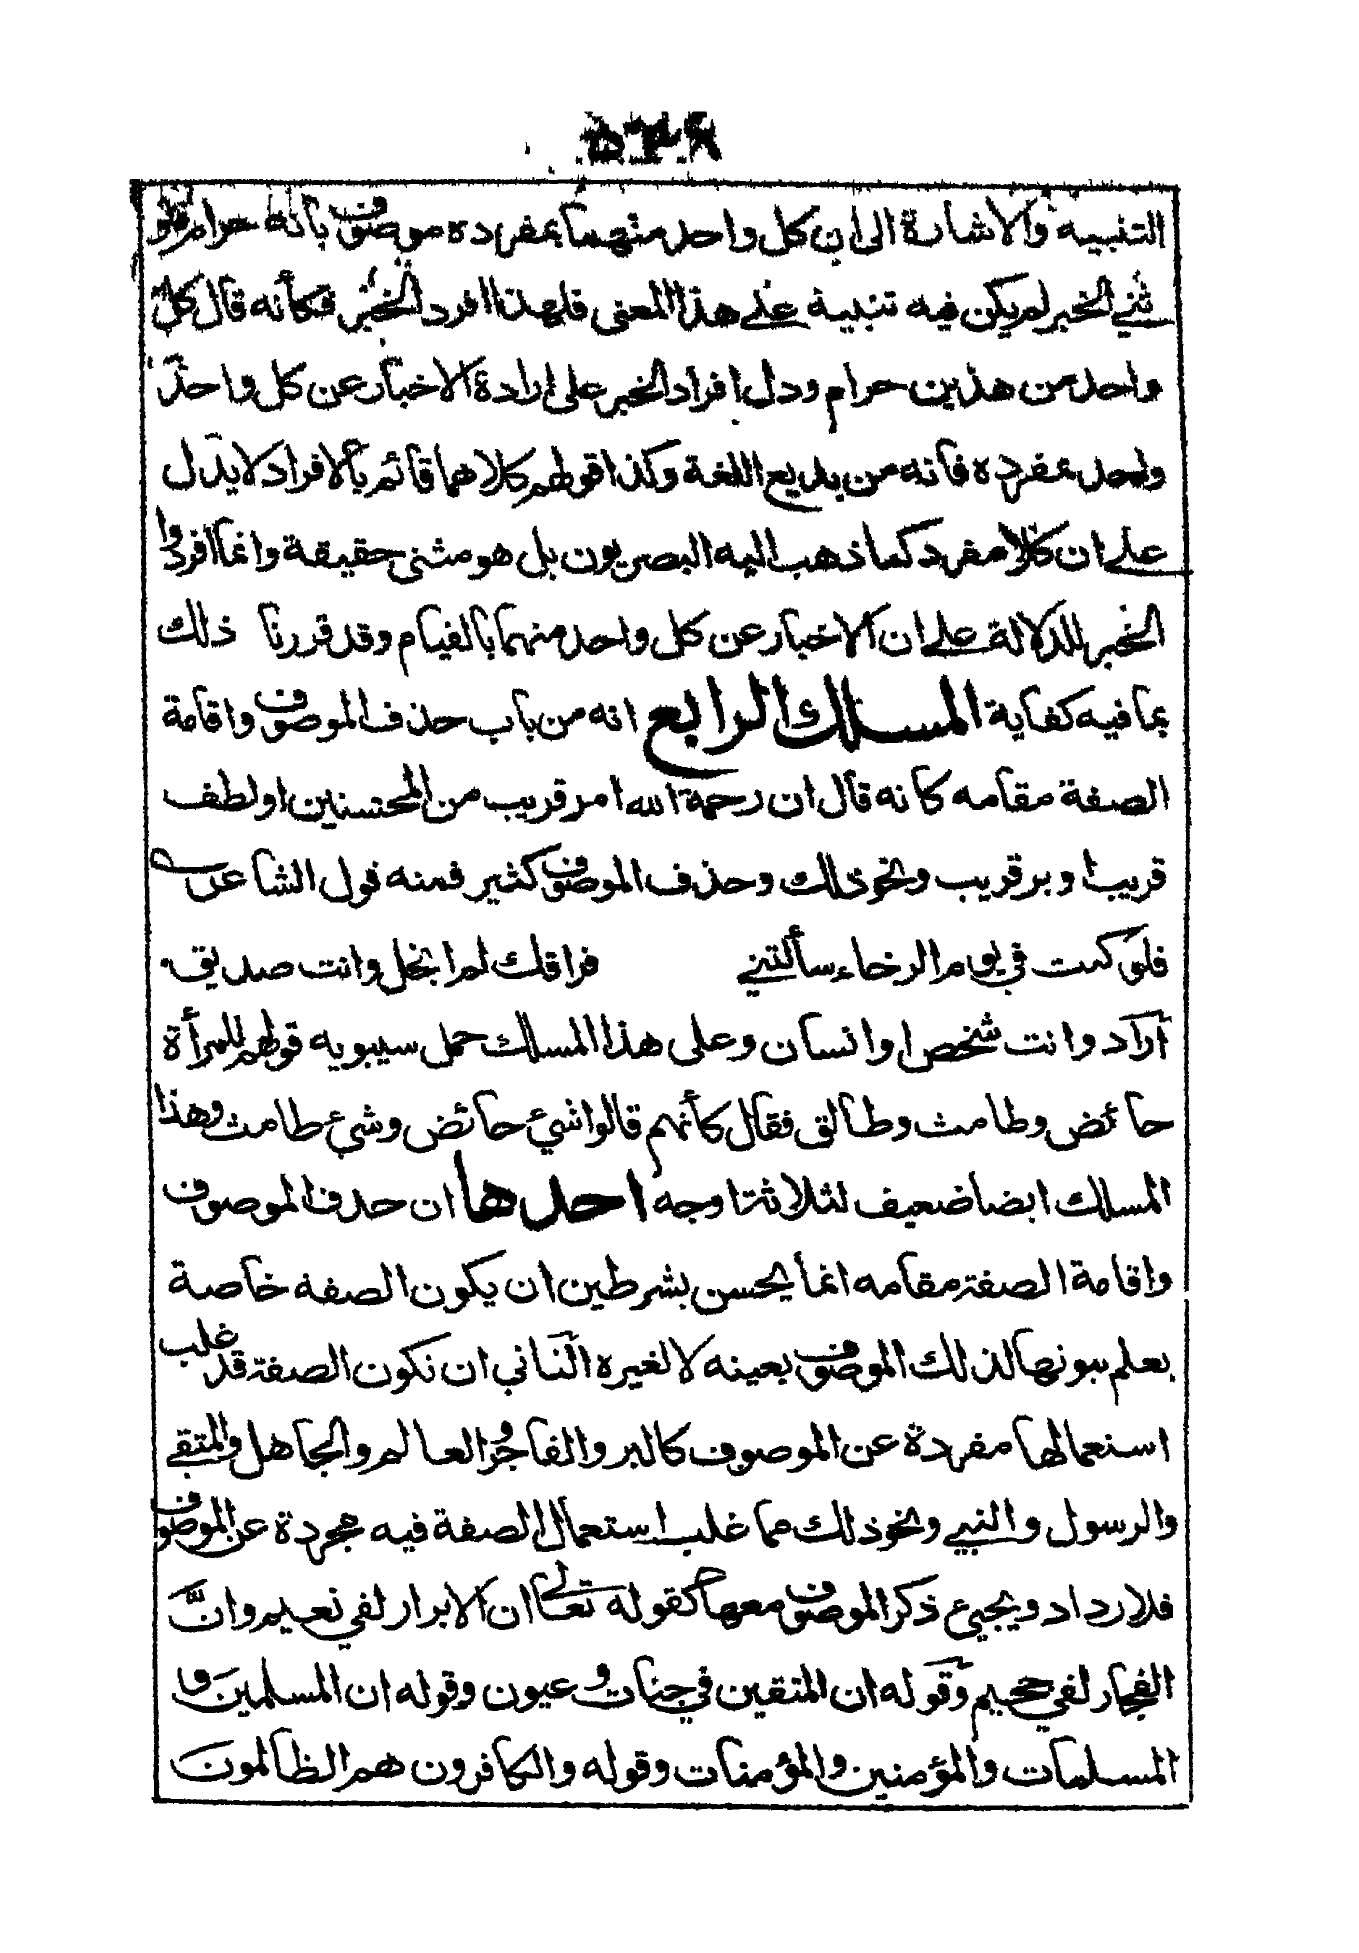 التنبيه والاشارة الى ان كل واحد منهما بمفرده موصوف بانه حرام فلو
ثني الخبر لم يكن فيه تنبيه على هذا المعنى فلهذا افرد الخبر فكأنه قال كل
واحد من هذين حرام ودل افراد الخبر على ارادة الاخبار عن كل واحد
واحد بمفرده فانه من بديع اللغة وكذا قولهم كلاهما قائم بالافراد لا يدل
على ان كلا مفرد كما ذهب اليه البصريون بل هو مثنى حقيقة وانما افردوا
الخبر للدلالة على ان الاخبار عن كل واحد منهما بالقيام وقد قررنا ذلك
بما فيه كفاية المسلك الرابع انه من باب حذف الموصوف واقامة
الصفة مقامه كانه قال ان رحمة الله امر قريب من المحسنين او لطف
قريب او بر قريب ونحو ذلك وحذف الموصوف كثير فمنه قول الشاعر
فلو كنت في يوم الرخاء سألتني فراقك لم ابخل وانت صديق
أراد وانت شخص او انسان وعلى هذا المسلك حمل سيبويه قولهم للمرأة
حائض وطامث وطالق فقال كأنهم قالوا شيء حائض وشيء طامث وهذا
المسلك ايضا ضعيف لثلاثة اوجه احدها ان حذف الموصوف
واقامة الصفة مقامه انما يحسن بشرطين ان يكون الصفة خاصة
يعلم ثبوتها لذلك الموصوف بعينه لا لغيره الثاني ان تكون الصفة قد غلب
استعمالها مفردة عن الموصوف كالبر والفاجر والعالم والجاهل والمتقي
والرسول والنبي ونحو ذلك مما غلب استعمال الصفة فيه مجردة عن الموصوف
فلا يرداد ويجيء ذكر الموصوف معها كقوله تعالى ان الابرار لفي نعيم وانّ
الفجار لفي جحيم وقوله ان المتقين في جنات وعيون وقوله ان المسلمين و
المسلمات والمؤمنين والمؤمنات وقوله والكافرون هم الظالمون